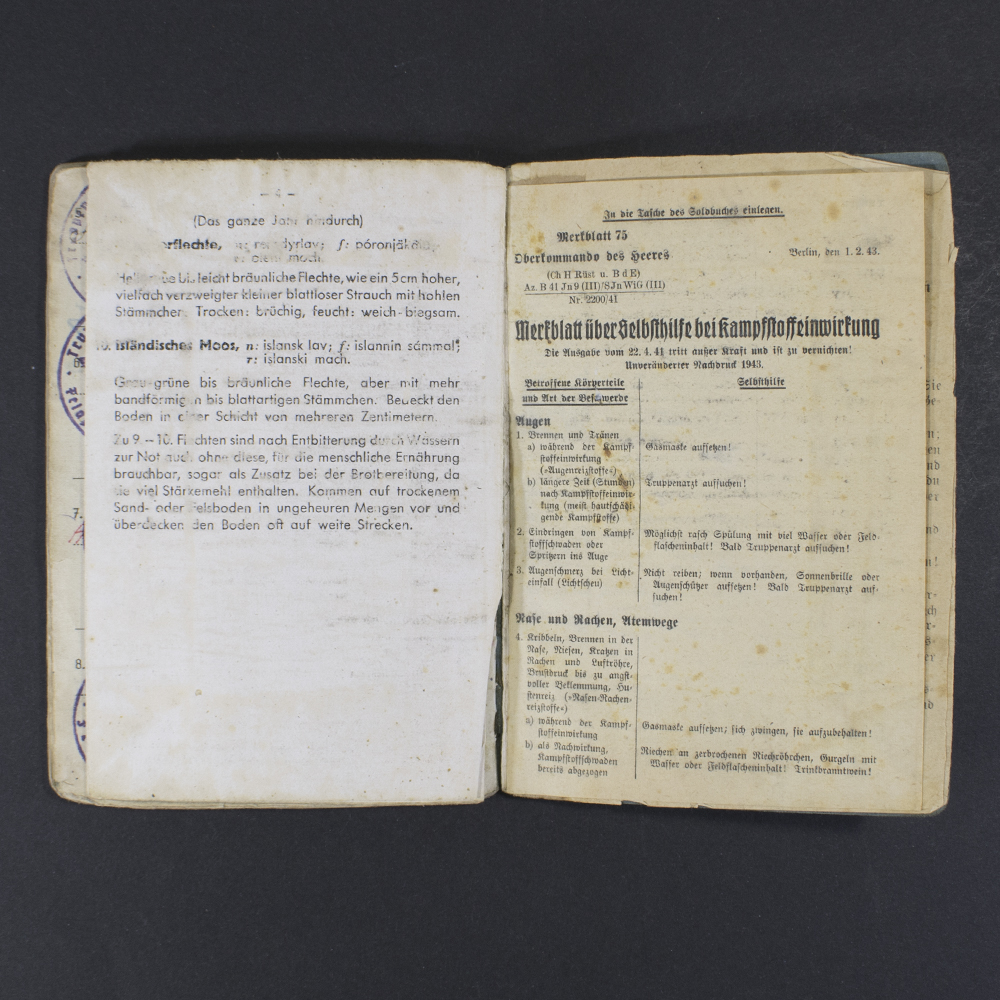 — 4 —
(Das ganze Jahr hindurch)
rflechte, dyrlav; f: póronjäkä
bis leicht bräunliche Flechte, wie ein 5 cm hoher,
vielfach verzweigter kleiner blattloser Strauch mit hohlen
Stämmchen. Trocken: brüchig, feucht: weich-biegsam.
10. isländisches Moos, n: islansk lav; f: islannin sámmal;
r: islanski mach.
Grau-grüne bis bräunliche Flechte, aber mit mehr
bandförmigen bis blattartigen Stämmchen. Bedeckt den
Boden in einer Schicht von mehreren Zentimetern.
Zu 9.—10. Flechten sind nach Entbitterung durch Wässern
zur Not auch ohne diese, für die menschliche Ernährung
brauchbar, sogar als Zusatz bei der Brotbereitung, da
sie viel Stärkemehl enthalten. Kommen auf trockenem
Sand- oder Felsboden in ungeheuren Mengen vor und
überdecken den Boden oft auf weite Strecken.
7.
8.
In die Tasche des Soldbuches einlegen.
Merkblatt 75
Oberkommando des Heeres
Berlin, den 1. 2. 43.
(Ch H Rüst u. B d E)
Az. B 41 Jn 9 (III)/8 Jn WiG (III)
Nr. 2200/41
Merkblatt über Selbsthilfe bei Kampfstoffeinwirkung
Die Ausgabe vom 22. 4. 41 tritt außer Kraft und ist zu vernichten!
Unveränderter Nachdruck 1943.
Betroffene Körperteile Selbsthilfe
und Art der Beschwerde
Augen
1. Brennen und Tränen
a) während der Kampf- Gasmaske aufsetzen!
stoffeinwirkung
(»Augenreizstoffe«)
b) längere Zeit (Stunden) Truppenarzt aufsuchen!
nach Kampfstoffeinwir-
kung (meist hautschädi-
gende Kampfstoffe)
2. Eindringen von Kampf- Möglichst rasch Spülung mit viel Wasser oder Feld-
stoffschwaden oder flascheninhalt! Bald Truppenarzt aufsuchen!
Spritzern ins Auge
3. Augenschmerz bei Licht- Nicht reiben; wenn vorhanden, Sonnenbrille oder
einfall (Lichtscheu) Augenschützer aufsetzen! Bald Truppenarzt auf-
suchen!
Nase und Rachen, Atemwege
4. Kribbeln, Brennen in der
Nase, Niesen, Kratzen in
Rachen und Luftröhre,
Brustdruck bis zu angst-
voller Beklemmung, Hu-
stenreiz (»Nasen-Rachen-
reizstoffe«)
a) während der Kampf- Gasmaske aufsetzen; sich zwingen, sie aufzubehalten!
stoffeinwirkung
b) als Nachwirkung, Riechen an zerbrochenen Riechröhrchen, Gurgeln mit
Kampfstoffschwaden Wasser oder Feldflascheninhalt! Trinkbranntwein!
bereits abgezogen